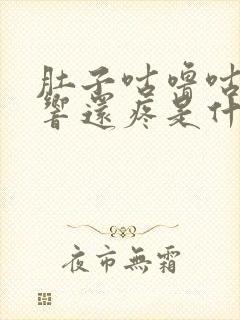 肚子咕嚕咕
響還疼是什
夜市無霜